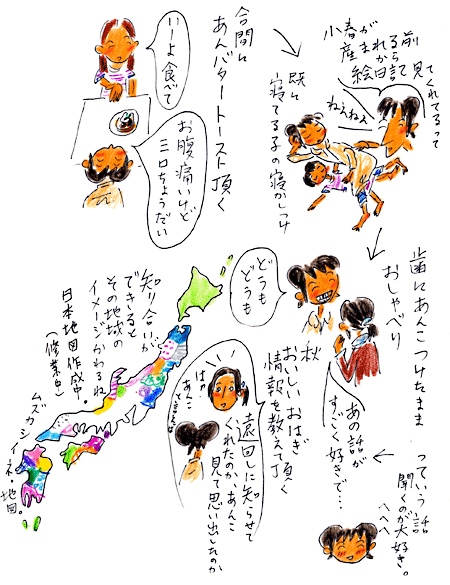 小春が
産まれる
前から
絵日記で見て
くれてるって
ねえねえ
既に
寝てる子の寝かしつけ
合間に
あんバタートースト頂く
いーよ食べて
お腹痛いけど
三口ちょうだい
歯にあんこつけたまま
おしゃべり
どうも
どうも
あの話が
すごく好きで…
っていう話
聞くのが大好き。
へへへ
秋
おいしいおはぎ
情報を教えて頂く
遠回しに知らせて
くれたのか、あんこ
見て思い出したのか
はの
あんこ
知り合いが
できると
その地域の
イメージかわるね
日本地図作成中。
(修業中)
ムズカシイネ・地図。